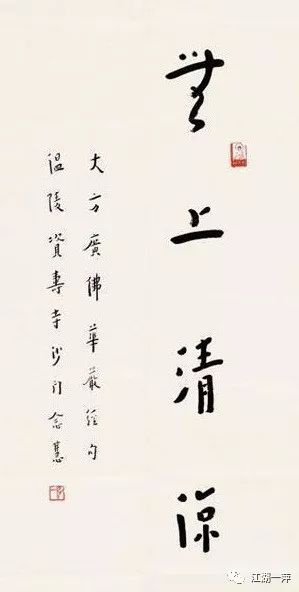 無上清涼
大方廣佛華嚴經句
温陵資壽寺沙門念慧
江湖一萍